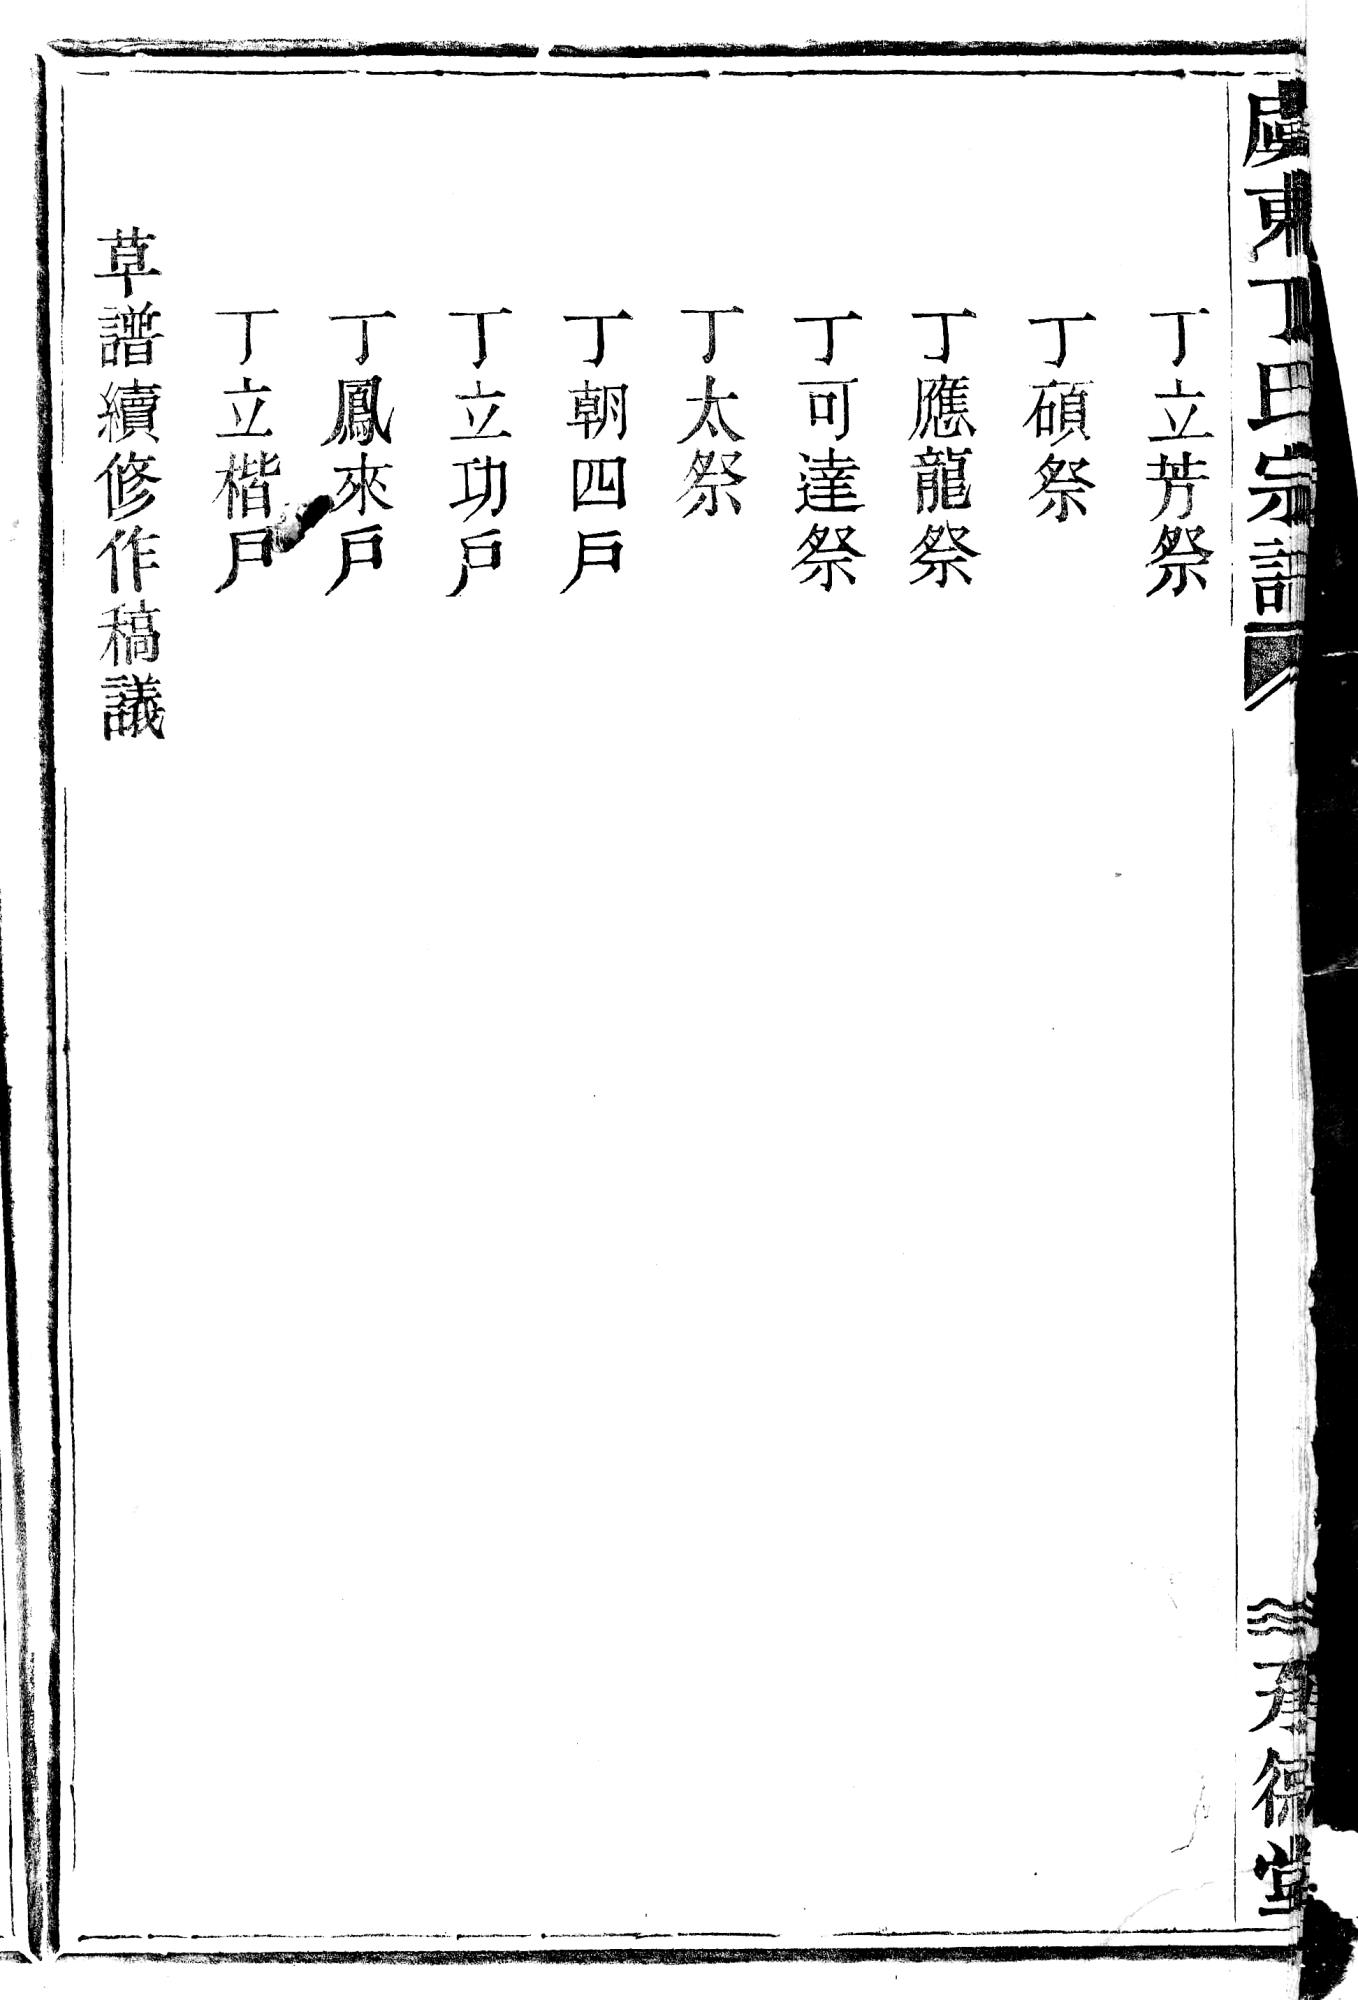 虞東丁氏宗譜
承德堂
丁立芳祭
丁碩祭
丁應龍祭
丁可達祭
丁太祭
丁朝四戶
丁立功戶
丁鳳來戶
丁立楷戶
草譜續修作稿議